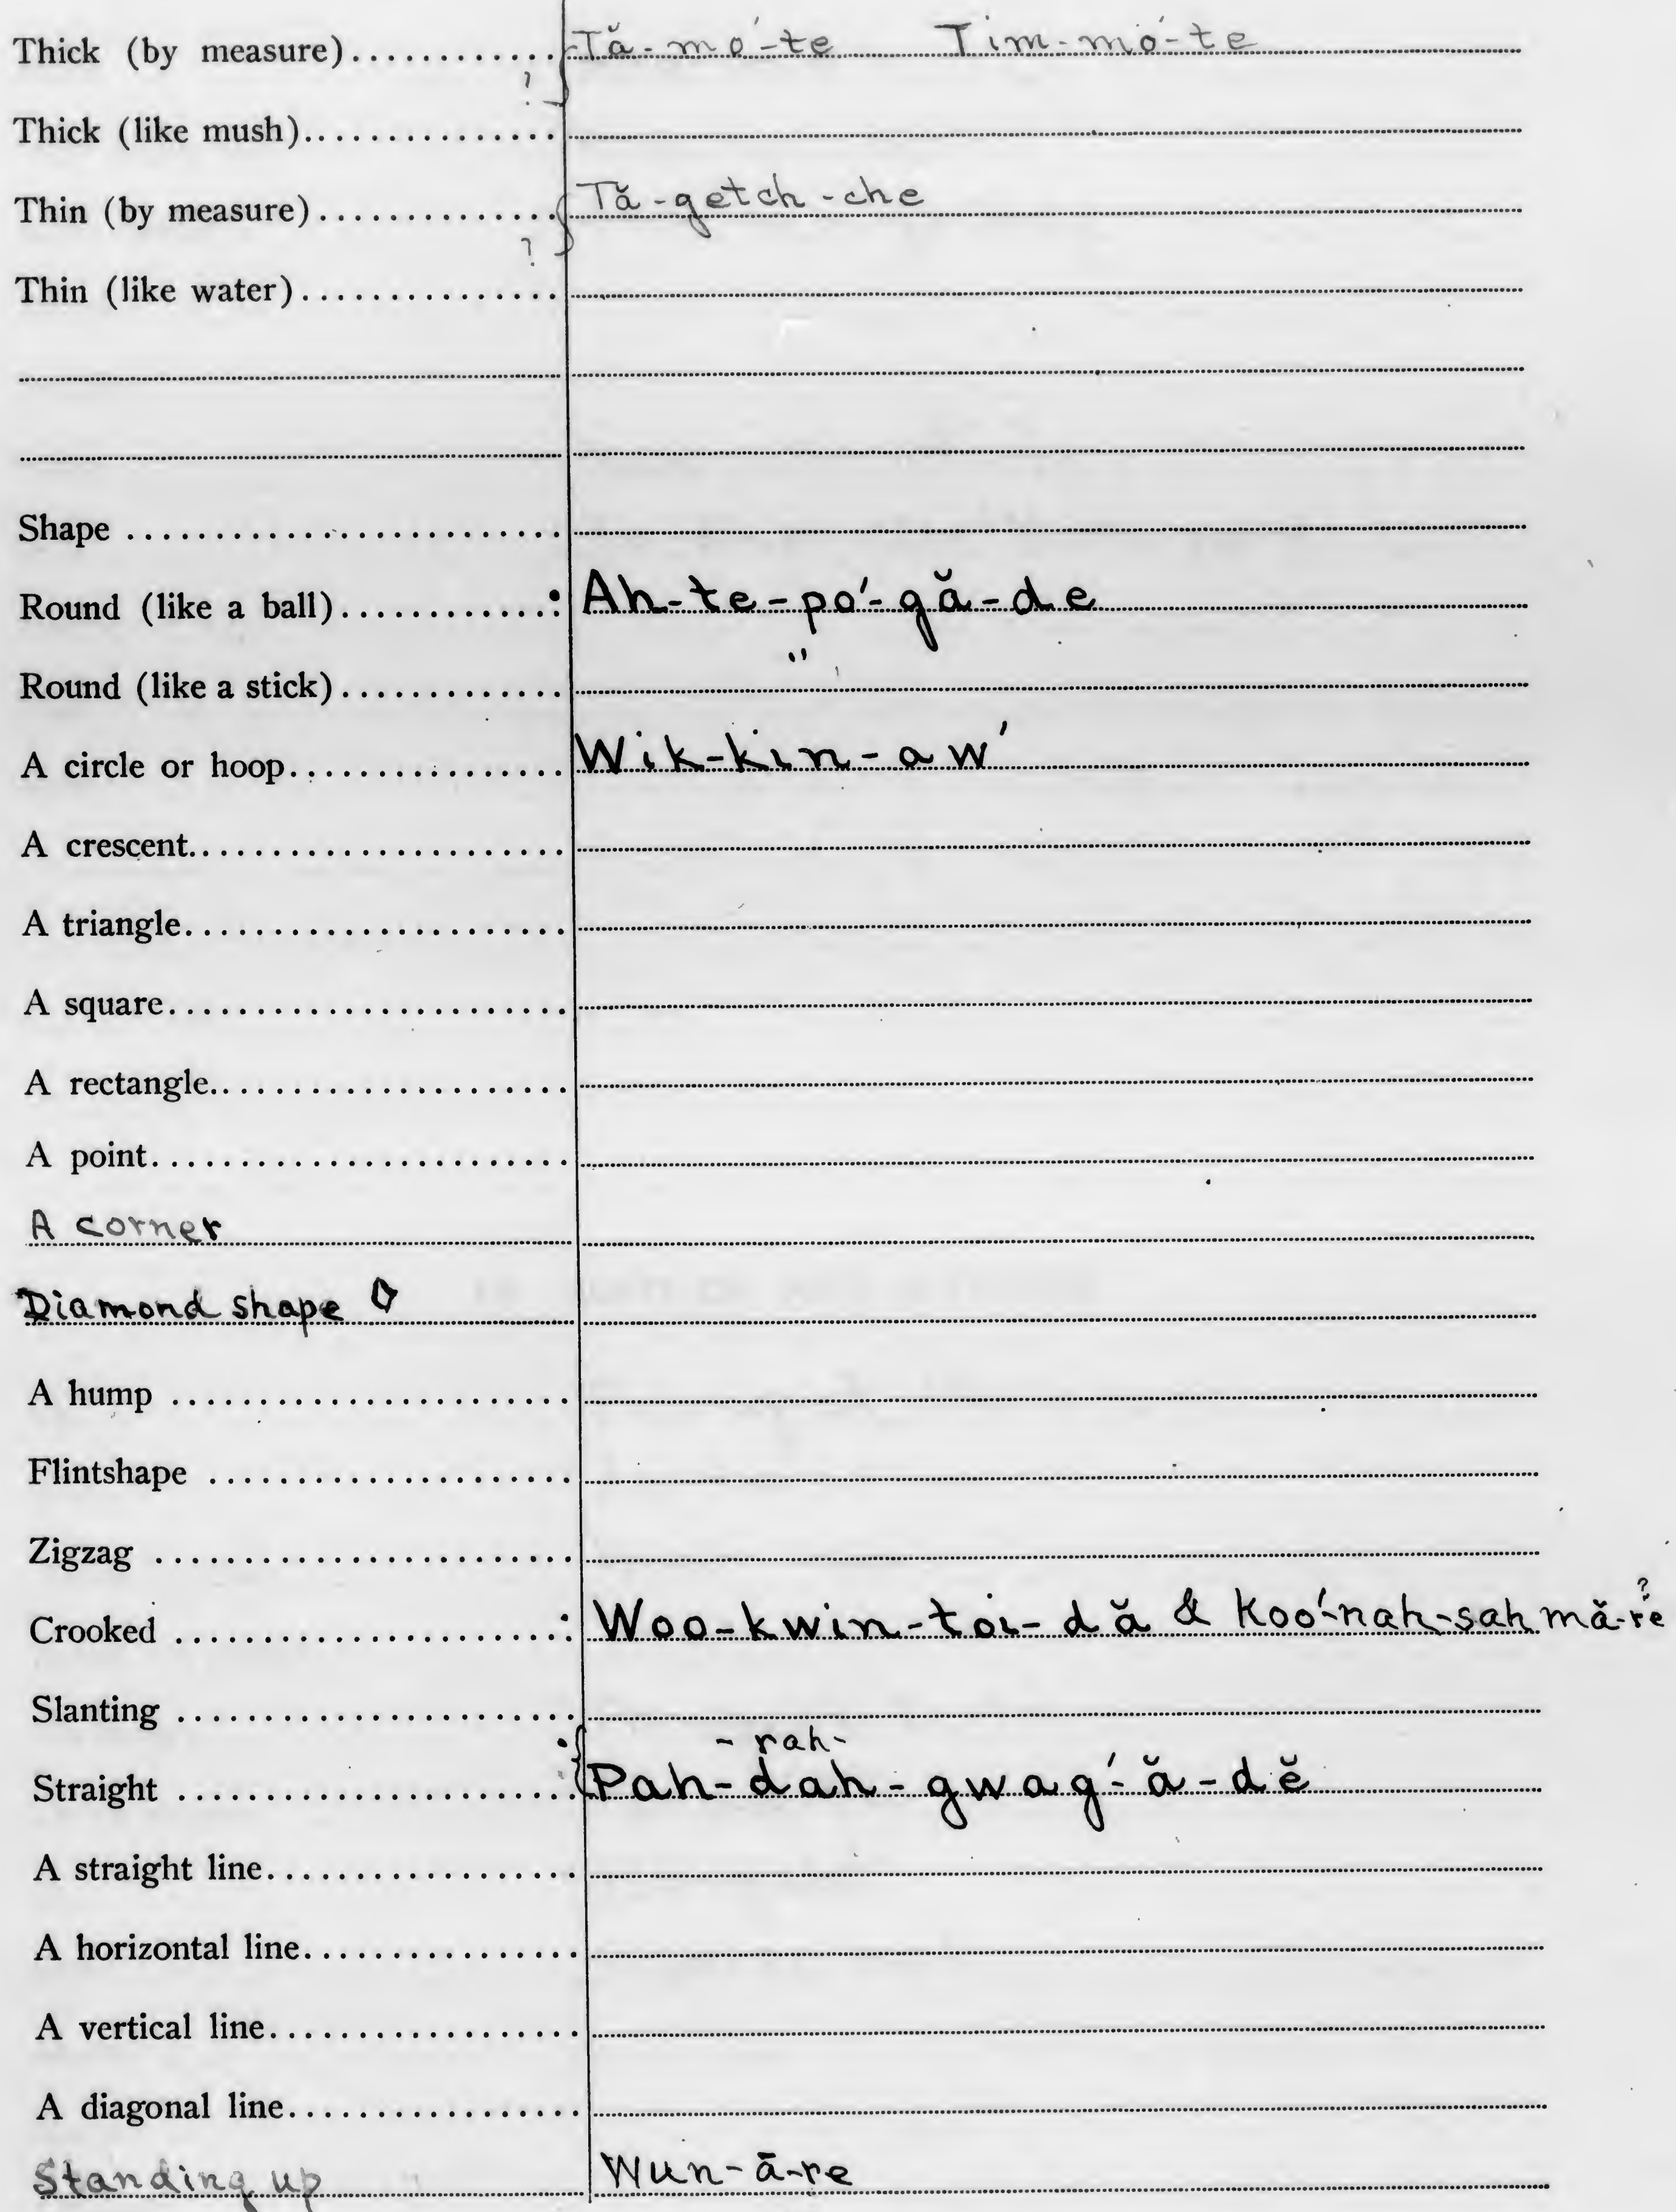 Thick (by measure)............ Tă-mó-te Tim-mó-te
?
Thick (like mush)...............
Thin (by measure).............. Tă-getch-che
?
Thin (like water)...............
Shape .........................
Round (like a ball)............: Ah-te-po´-gă-de
Round (like a stick)............. "
A circle or hoop................ Wik-kin-aw´
A crescent......................
A triangle.......................
A square........................
A rectangle.....................
A point.........................
A corner
Diamond shape ◊
A hump .......................
Flintshape .....................
Zigzag ........................
Crooked ......................: Woo-kwin-toi-dă & Koo´-nah-sah mă-re ?
Slanting .......................
-rah-
Straight ....................... Pah-dah-gwag´-ă-dĕ
A straight line..................
A horizontal line................
A vertical line..................
A diagonal line.................
Standing up Wun-ā-re